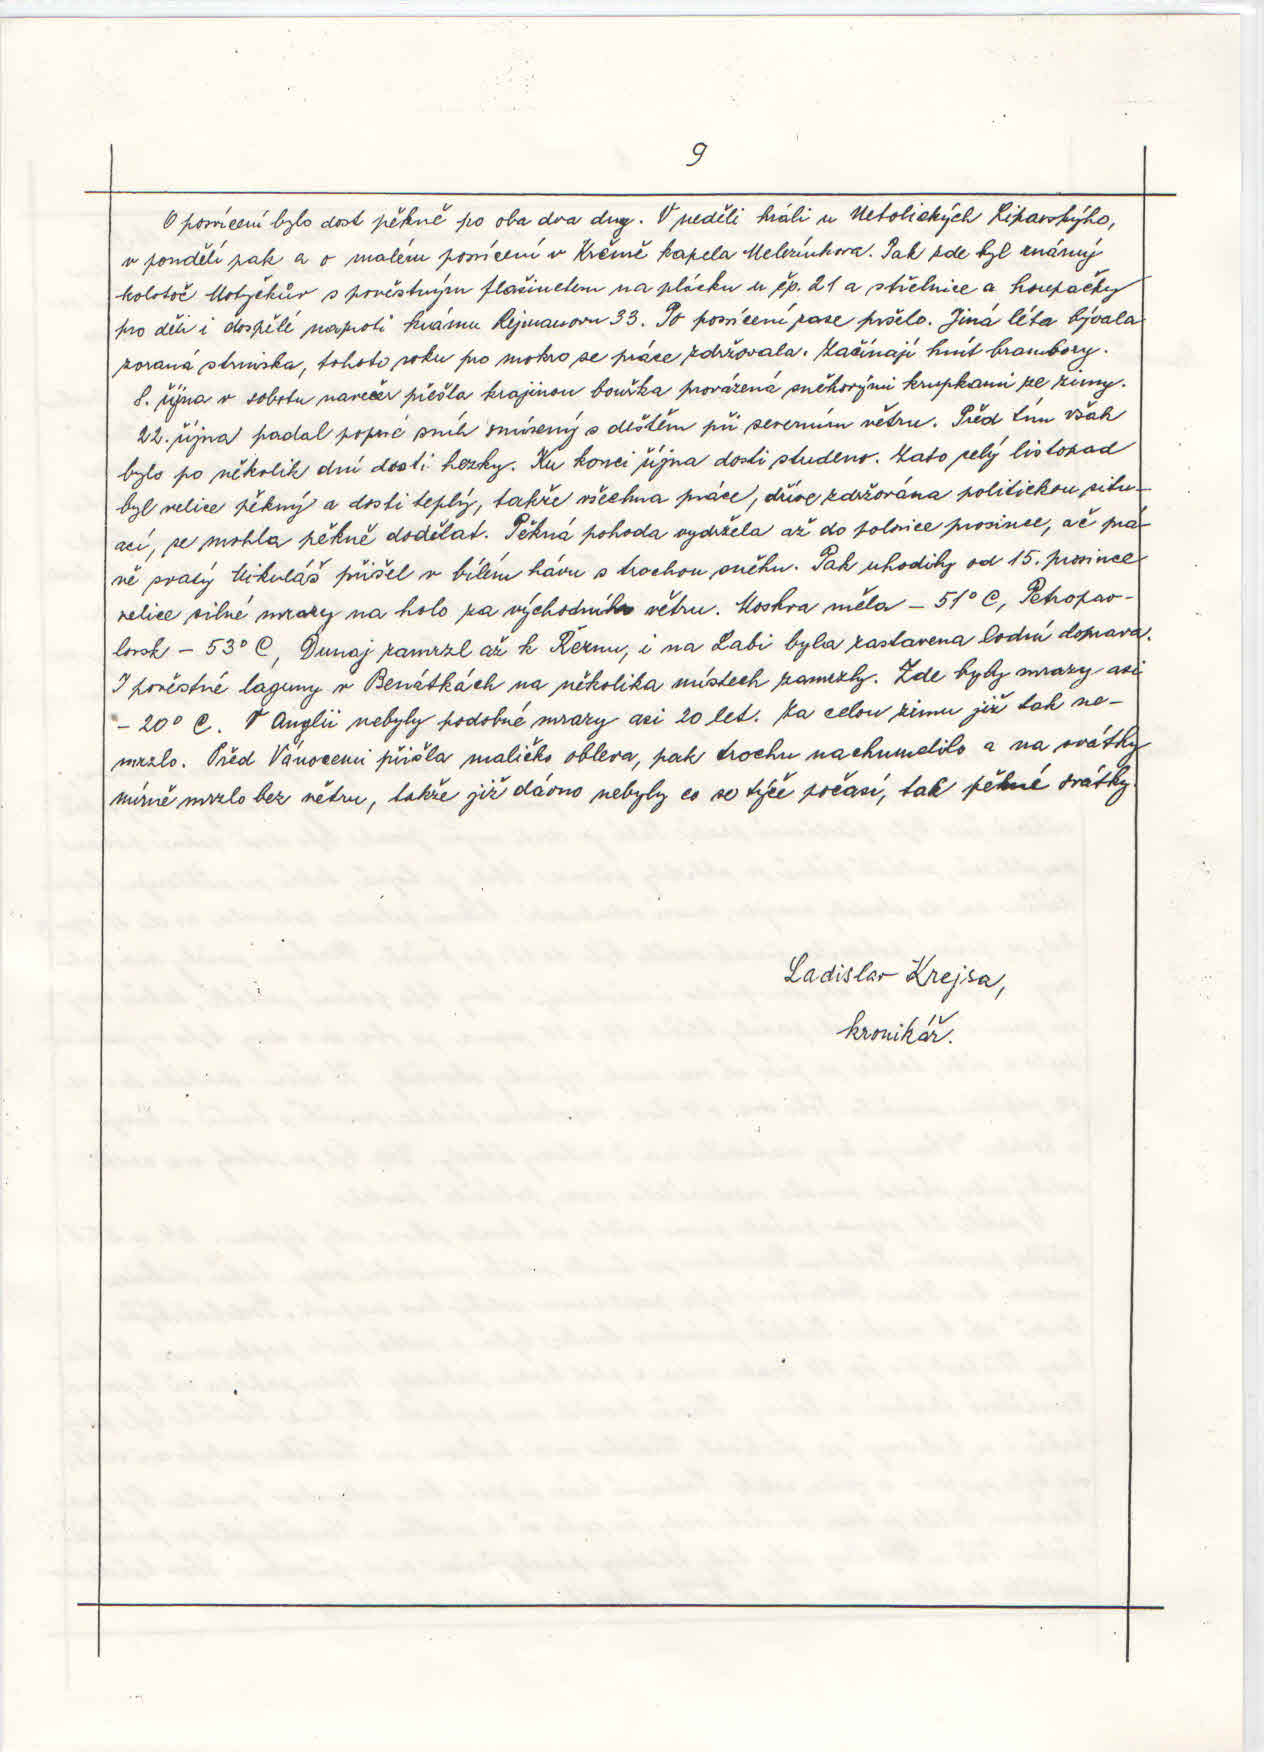 9
O posvícení bylo dost pěkně po oba dva dny. V neděli hráli u Netolických Lipavskýho,
v pondělí pak a o malém posvícení v Krčmě kapela Melezínkova. Pak zde byl známý
kolotoč Motyčkův s pověstným flašinetem na plácku u čp. 21 a střelnice a houpačky
pro děti i dospělé naproti krámu Rejmanovu 33. Po posvícení zase pršelo. Jiná léta bývala
zoraná strniska, tohoto roku pro mokro se práce zdržovala. Začínají hnít brambory.
8. října v sobotu navečer přešla krajinou bouřka provázená sněhovými krupkami ze zimy.
22. října padal poprvé sníh smísený s deštěm při severním větru. Před tím však
bylo po několik dní dosti hezky. Ku konci října dosti studeno. Zato celý listopad
byl velice pěkný a dosti teplý, takže všechna práce, dříve zdržována politickou situ-
ací, se mohla pěkně dodělat. Pěkná pohoda vydržela až do polovice prosince, ač prá-
vě svatý Mikuláš přišel v bílém hávu s trochou sněhu. Pak uhodily od 15. prosince
velice silné mrazy na holo za východního větru. Moskva měla - 51° C, Petropav-
lovsk - 53° C, Dunaj zamrzl až k Řeznu, i na Labi byla zastavena lodní doprava.
I pověstné laguny v Benátkách na několika místech zamrzly. Zde byly mrazy asi
- 20° C. V Anglii nebyly podobné mrazy asi 20 let. Za celou zimu již tak ne-
mrzlo. Před Vánocemi přišla maličko obleva, pak trochu nachumelilo a na svátky
mírně mrzlo bez větru, takže již dávno nebyly co se týče počasí, tak pěkné svátky.
Ladislav Krejsa,
kronikář.